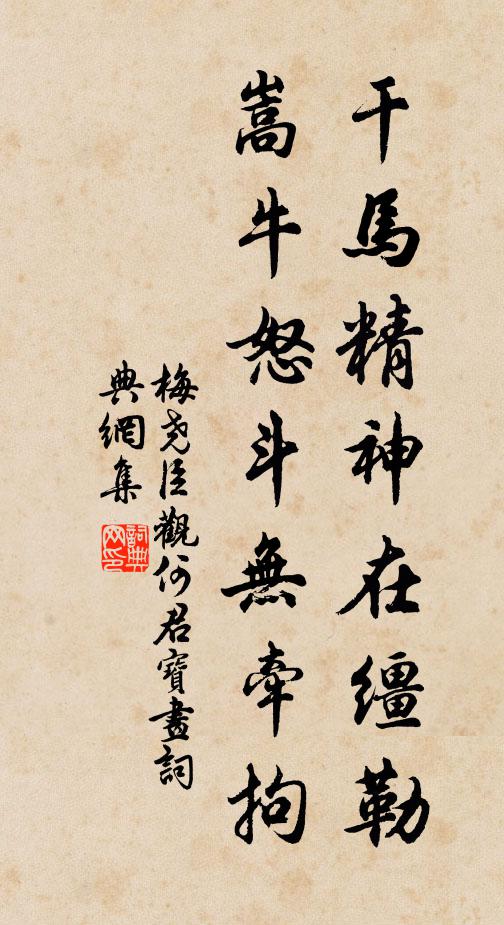 干馬精神在繮勒
嵩牛怒斗無牽拘
梅堯臣觀何君寶畫詞
典網集
詞典
網印